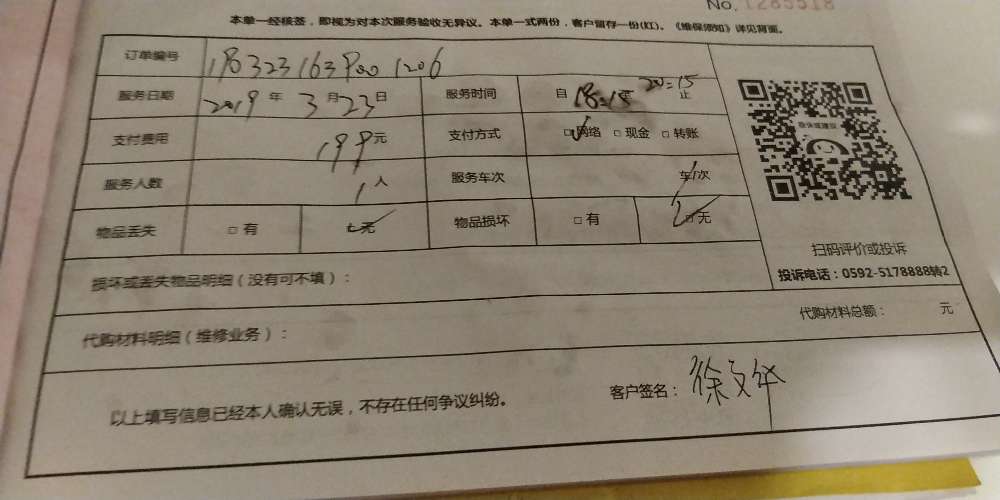 No. 1285518
本单一经核签，即视为对本次服务验收无异议。本单一式两份，客户留存一份(红)。《维保须知》详见背面。
订单编号 190323163P001206
服务日期 2019 年 3 月 23 日 服务时间 自 18:15 20:15 止
支付费用 199 元 支付方式 □网络 □现金 □转账
服务人数 1 人 服务车次 车/次
物品丢失 □有 无 物品损坏 □有 □无
损坏或丢失物品明细（没有可不填）：
代购材料明细（维修业务）： 代购材料总额： 元
以上填写信息已经本人确认无误，不存在任何争议纠纷。 客户签名：徐文
扫码评价或投诉
投诉电话：0592-5178888转2